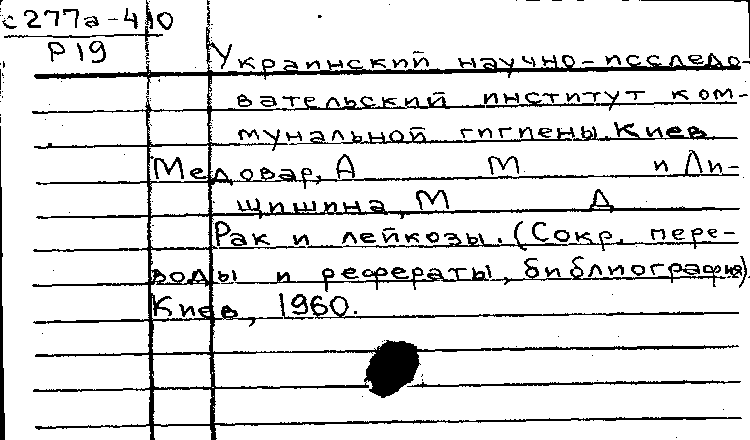 с277а-410
Р19
Украинский научно-исследо-
вательский институт ком-
мунальной гигиены. Киев
Медовар, А М и Ли-
щишина, М Д
Рак и лейкозы. (Сокр. пере-
воды и рефераты, библиография)
Киев, 1960.